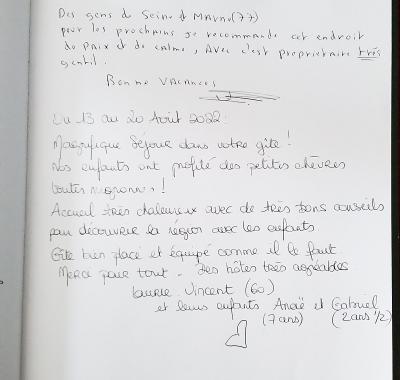 Des gens de Seine & Marne (77)
pour les prochains je recommande cet endroit
de paix et de calme, Avec c'est propriétaire très
gentil.
Bonne Vacances
Du 13 au 20 Août 2022.
Magnifique Séjour dans votre gîte !
Nos enfants ont profité des petites chèvres
toutes mignonnes !
Accueil très chaleureux avec de très bons conseils
pour découvrir la région avec les enfants
Gîte bien placé et équipé comme il le faut.
Merci pour tout - Des hôtes très agréables
Laurie Vincent (60)
et leurs enfants Anaë et Gabriel
(7 ans) (2 ans 1/2)